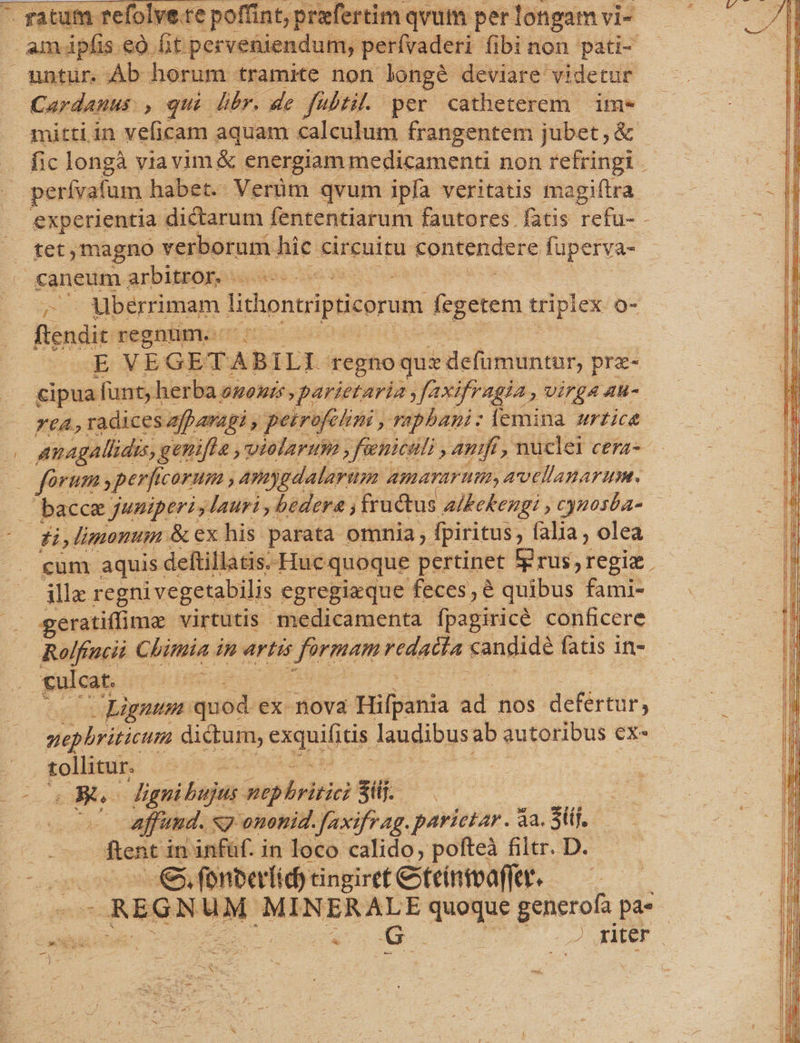 ratum reſolvere poſſint, præſertim qvum per longam vi-
am ipſis eò ſit perveniendum, perſvaderi ſibi non pati-
untur. Ab horum tramite non longè deviare videtur
Cardanus , qui libr. de ſubtil. per catheterem im-
mitti in veſicam aquam calculum frangentem jubet, &
ſic longà via vim & energiam medicamenti non refringi
perſvaſum habet. Verùm qvum ipſa veritatis magiſtra
experientia dictarum ſententiarum fautores ſatis refu-
tet, magno verborum hîc circuitu contendere ſuperva-
caneum arbitror.
Uberrimam lithontripticorum ſegetem triplex o-
ſtendit regnum.
E VEGETABILI regno quæ deſumuntur, præ-
cipua ſunt, herba ononis, parietaria, ſaxifragia, virga au-
rea, radices aſparagi, petroſelini, raphani: ſemina urticæ
anagallidis, geniſtæ, violarum, fœniculi, aniſi, nuclei cera-
ſorum, perſicorum, amygdalarum amararum, avellanarum.
baccæ juniperi, lauri, hederæ, fructus alkekengi, cynosba-
ti, limonum & ex his parata omnia, ſpiritus, ſalia, olea
cum aquis deſtillatis. Huc quoque pertinet 🜿rus, regiæ
illæ regni vegetabilis egregiæque feces, è quibus fami-
geratiſſimæ virtutis medicamenta ſpagiricè conficere
Rolfincii Chimia in artis formam redacta candidè ſatis in-
culcat.
Lignum quod ex nova Hiſpania ad nos defertur,
nephriticum dictum, exquiſitis laudibus ab autoribus ex-
tollitur.
℞. ligni hujus nephritici ℥iij.
affund. ononid. ſaxifrag. parietar. āa. ℥iij.
ſtent in infuſ. in loco calido, poſteà filtr. D.
S. ſonderlich tingiret Steinwaſſer.
REGNUM MINERALE quoque generoſa pa-
G riter